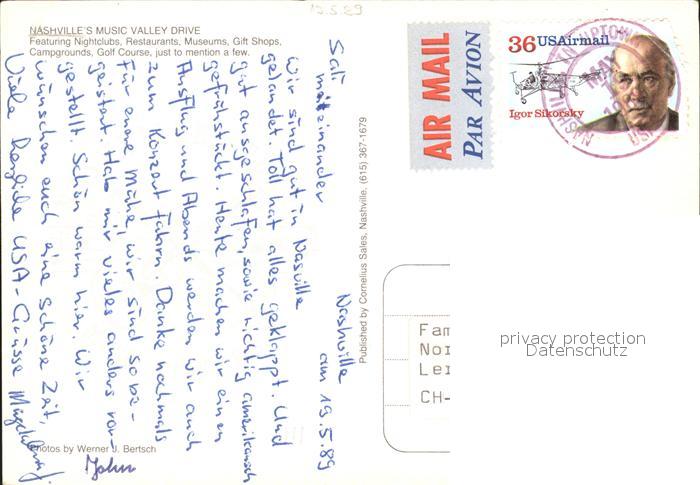 19.5.89
NASHVILLE'S MUSIC VALLEY DRIVE
Featuring Nightclubs, Restaurants, Museums, Gift Shops,
Campgrounds, Golf Course, just to mention a few.
Nashville
am 19.5.89
Sali miteinander
Wir sind gut in Nasville
gelandet. Toll hat alles geklappt. Und
gut ausgeschlafen, sowie richtig amerikanisch
gefrühstückt. Heute machen wir einen
Ausflug und Abends werden wir auch
zum Konzert fahrn. Danke nochmals
für eure Mühe, wir sind so be-
geistert. Hab mir vieles anders vor-
gestellt. Schön warm hier. Wir
wünschen euch eine schöne Zeit,
Viele herzliche USA-Grüsse
John
Photos by Werner J. Bertsch
Published by Cornelius Sales, Nashville, (615) 367-1679
AIR MAIL
PAR AVION
36 USAirmail
Igor Sikorsky
NASHVILLE
UPTOWN
MAY
USP
Fam
Nor
Ler
CH-
privacy protection
Datenschutz